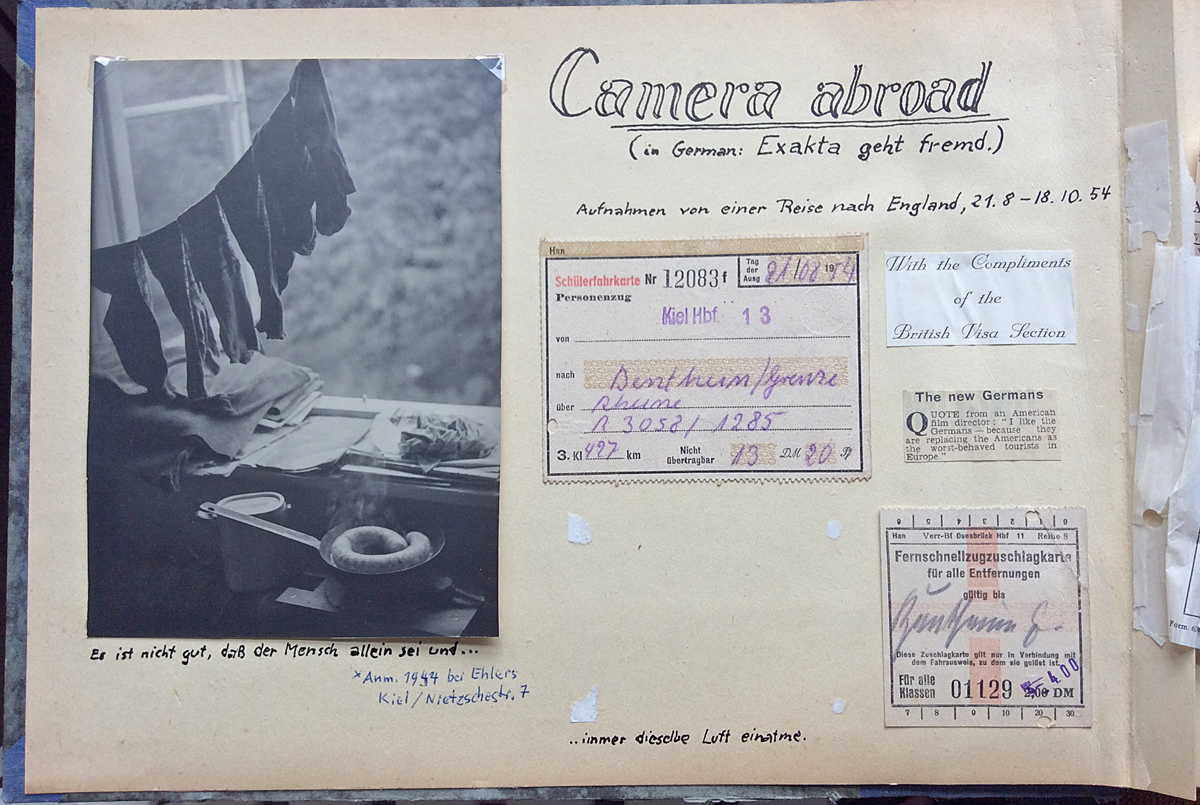 Camera abroad
(in German: Exakta geht fremd.)
Aufnahmen von einer Reise nach England, 21.8 – 18.10.54
Han
Schülerfahrkarte Nr 12083 f
Tag der Ausg 21/08 1954
Personenzug
Kiel Hbf. 13
von
nach Bentheim/Grenze
über Rheine
R 3058/ 1285
3. Kl 497 km Nicht übertragbar 13 DM 20 Pf
With the Compliments
of the
British Visa Section
The new Germans
QUOTE from an American
film director: "I like the
Germans — because they
are replacing the Americans as
the worst-behaved tourists in
Europe."
6 5 4 3 2 1 0
Han Verr-Bf Osnabrück Hbf 11 Reihe S
Fernschnellzugzuschlagkarte
für alle Entfernungen
gültig bis
Diese Zuschlagkarte gilt nur in Verbindung mit
dem Fahrausweis, zu dem sie gelöst ist.
Für alle
Klassen 01129 2,00 DM
4.00
7 8 9 10 20 30
Es ist nicht gut, daß der Mensch allein sei und...
*Anm. 1947 bei Ehlers
Kiel/Nietzschestr. 7
..immer dieselbe Luft einatme.
Form.